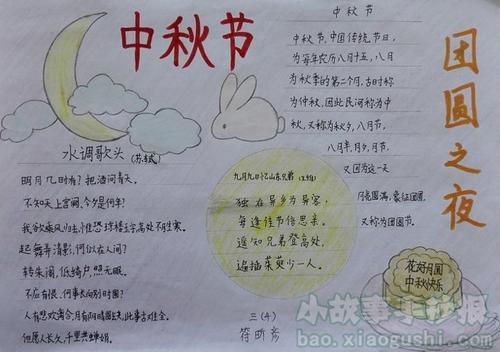 中秋节
水调歌头(苏轼)
明月几时有?把酒问青天。
不知天上宫阙,今夕是何年?
我欲乘风归去,惟恐琼楼玉宇,高处不胜寒。
起舞弄清影,何似在人间?
转朱阁,低绮户,照无眠。
不应有恨,何事长向别时圆?
人有悲欢离合,月有阴晴圆缺,此事古难全。
但愿人长久,千里共婵娟。
九月九日忆山东兄弟(王维)
独在异乡为异客,
每逢佳节倍思亲。
遥知兄弟登高处,
遍插茱萸少一人。
三(4)
中秋节
中秋节,中国传统节日,
为每年农历八月十五,八月
为秋季的第二个月,古时称
为仲秋,因此民间称为中
秋,又称为秋夕,八月节,
八月半,月夕,月节,
又因为这一天
月亮圆满,象征团圆,
又称为团圆节。
团圆之夜
花好月圆
中秋快乐
小故事手抄报
bao.xiaogushi.com